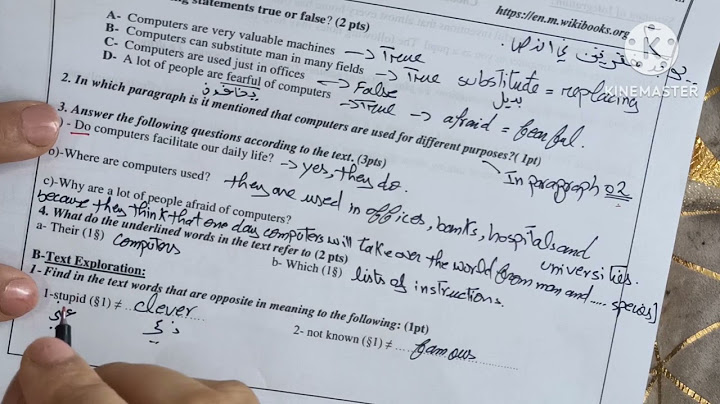 statements true or false? (2 pts)
https://en.m.wikibooks.org
A- Computers are very valuable machines → True
B- Computers can substitute man in many fields → True substitute = replacing
بديل
C- Computers are used just in offices → False
D- A lot of people are fearful of computers → True → afraid = fearful.
2. In which paragraph is it mentioned that computers are used for different purposes?( 1pt)
In paragraph 02
3. Answer the following questions according to the text. (3pts)
)- Do computers facilitate our daily life? → yes, they do.
b)-Where are computers used? they are used in offices, banks, hospitals and universities.
c)-Why are a lot of people afraid of computers?
because they think that one day computers will take over the world from man and ..... species]
4. What do the underlined words in the text refer to (2 pts)
a- Their (1§) computers b- Which (1§) lists of instructions.
B-Text Exploration:
1-Find in the text words that are opposite in meaning to the following: (1pt)
1-stupid (§1) ≠ ..clever........ 2- not known (§1) ≠ .... famous......
غبي ذكي
KINEMASTER